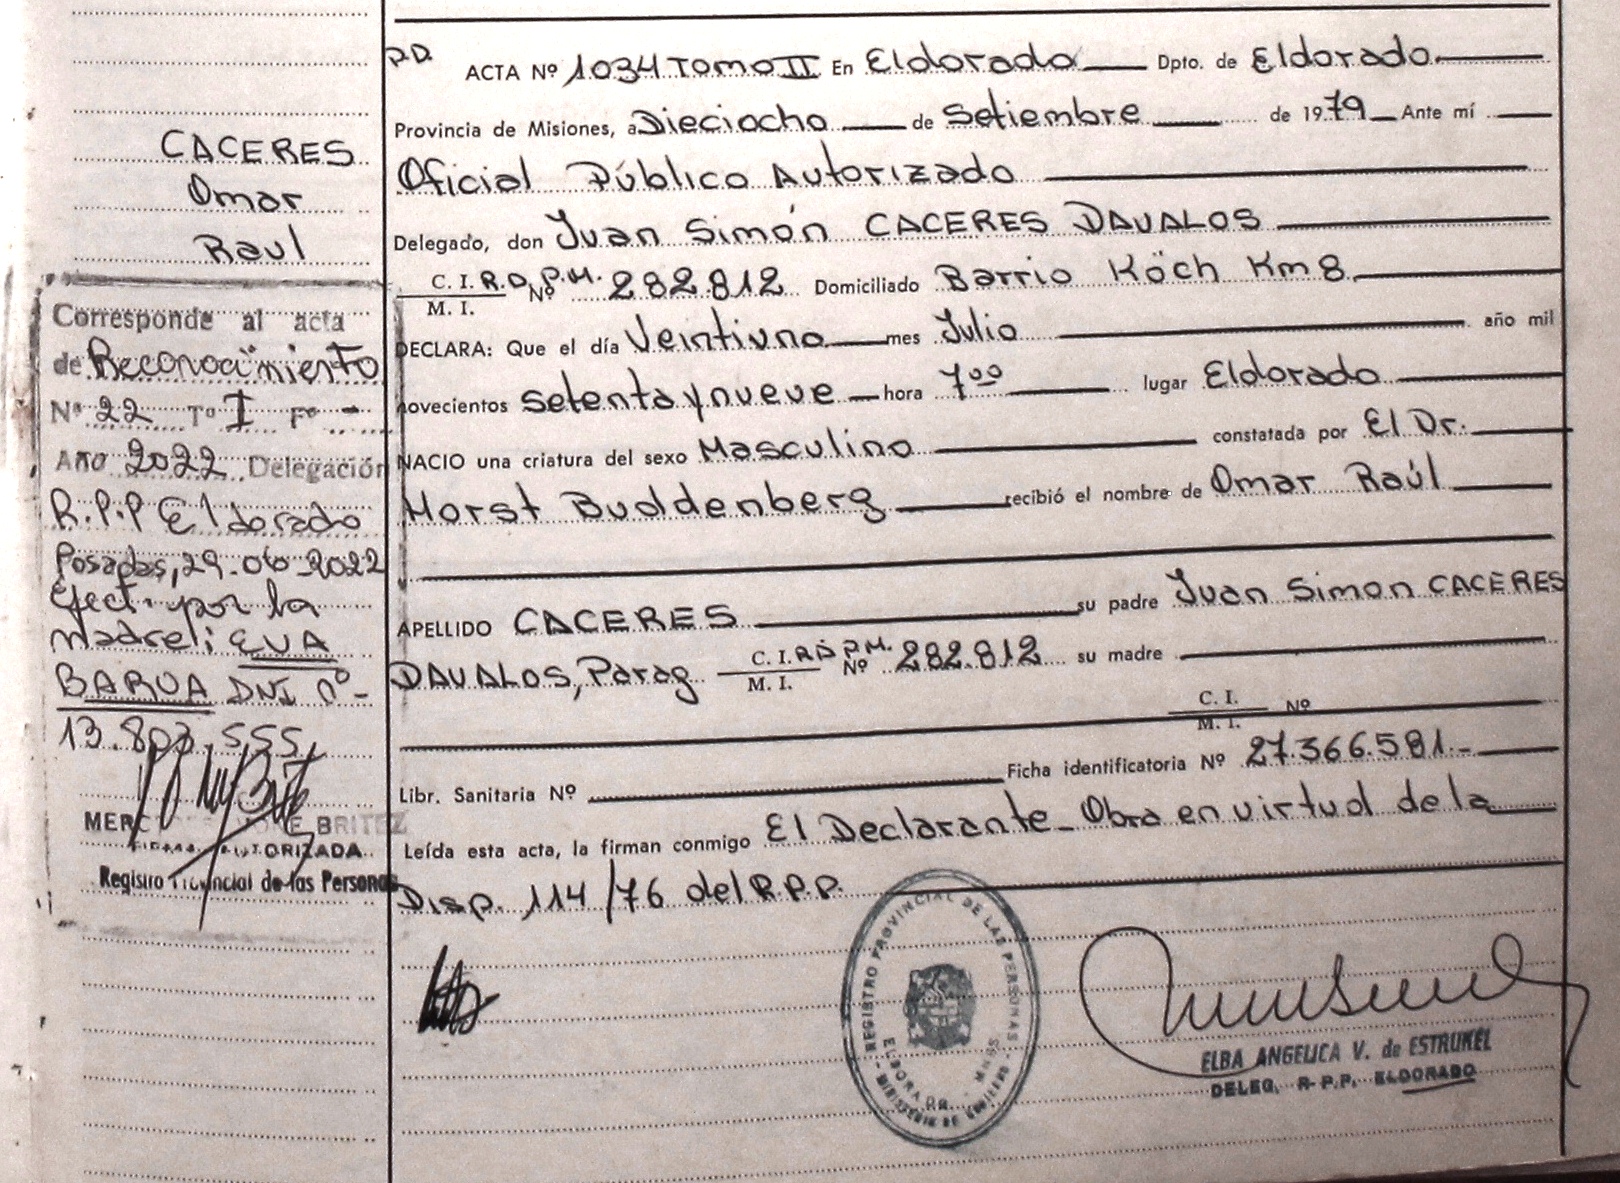 CACERES
Omar
Raul
Corresponde al acta
de Reconocimiento
Nº 22 Tº I Fº -
Año 2022 Delegación
R.P.P Eldorado
Posadas, 29. 06 2022
Efect. por la
madre: EVA
BARUA DNI nº-
13.803.555
BRITEZ
AUTORIZADA
Registro Provincial de las Personas
ACTA Nº 1034 Tomo II En Eldorado Dpto. de Eldorado
Provincia de Misiones, a Dieciocho de Setiembre de 1979 Ante mí
Oficial Público Autorizado
Delegado, don Juan Simón CACERES DAVALOS
C. I. R.D.P.M. Nº 282.812 Domiciliado Barrio Köch Km 8
M. I.
DECLARA: Que el día Veintiuno mes Julio año mil
novecientos setenta y nueve hora 7⁰⁰ lugar Eldorado
NACIO una criatura del sexo Masculino constatada por El Dr.
Horst Buddenberg recibió el nombre de Omar Raúl
APELLIDO CACERES su padre Juan Simon CACERES
DAVALOS, Parag C. I. R.D.P.M. Nº 282.812 su madre
M. I.
C. I. Nº
M. I.
Libr. Sanitaria Nº Ficha identificatoria Nº 27.366.581.-
Leída esta acta, la firman conmigo El Declarante_ Obra en virtud de la
Disp. 114/76 del R.P.P.
REGISTRO PROVINCIAL DE LAS PERSONAS
ELDORADO
MINISTERIO DE GOBIERNO
ELBA ANGELICA V. de ESTRUKEL
DELEG. R.P.P. ELDORADO